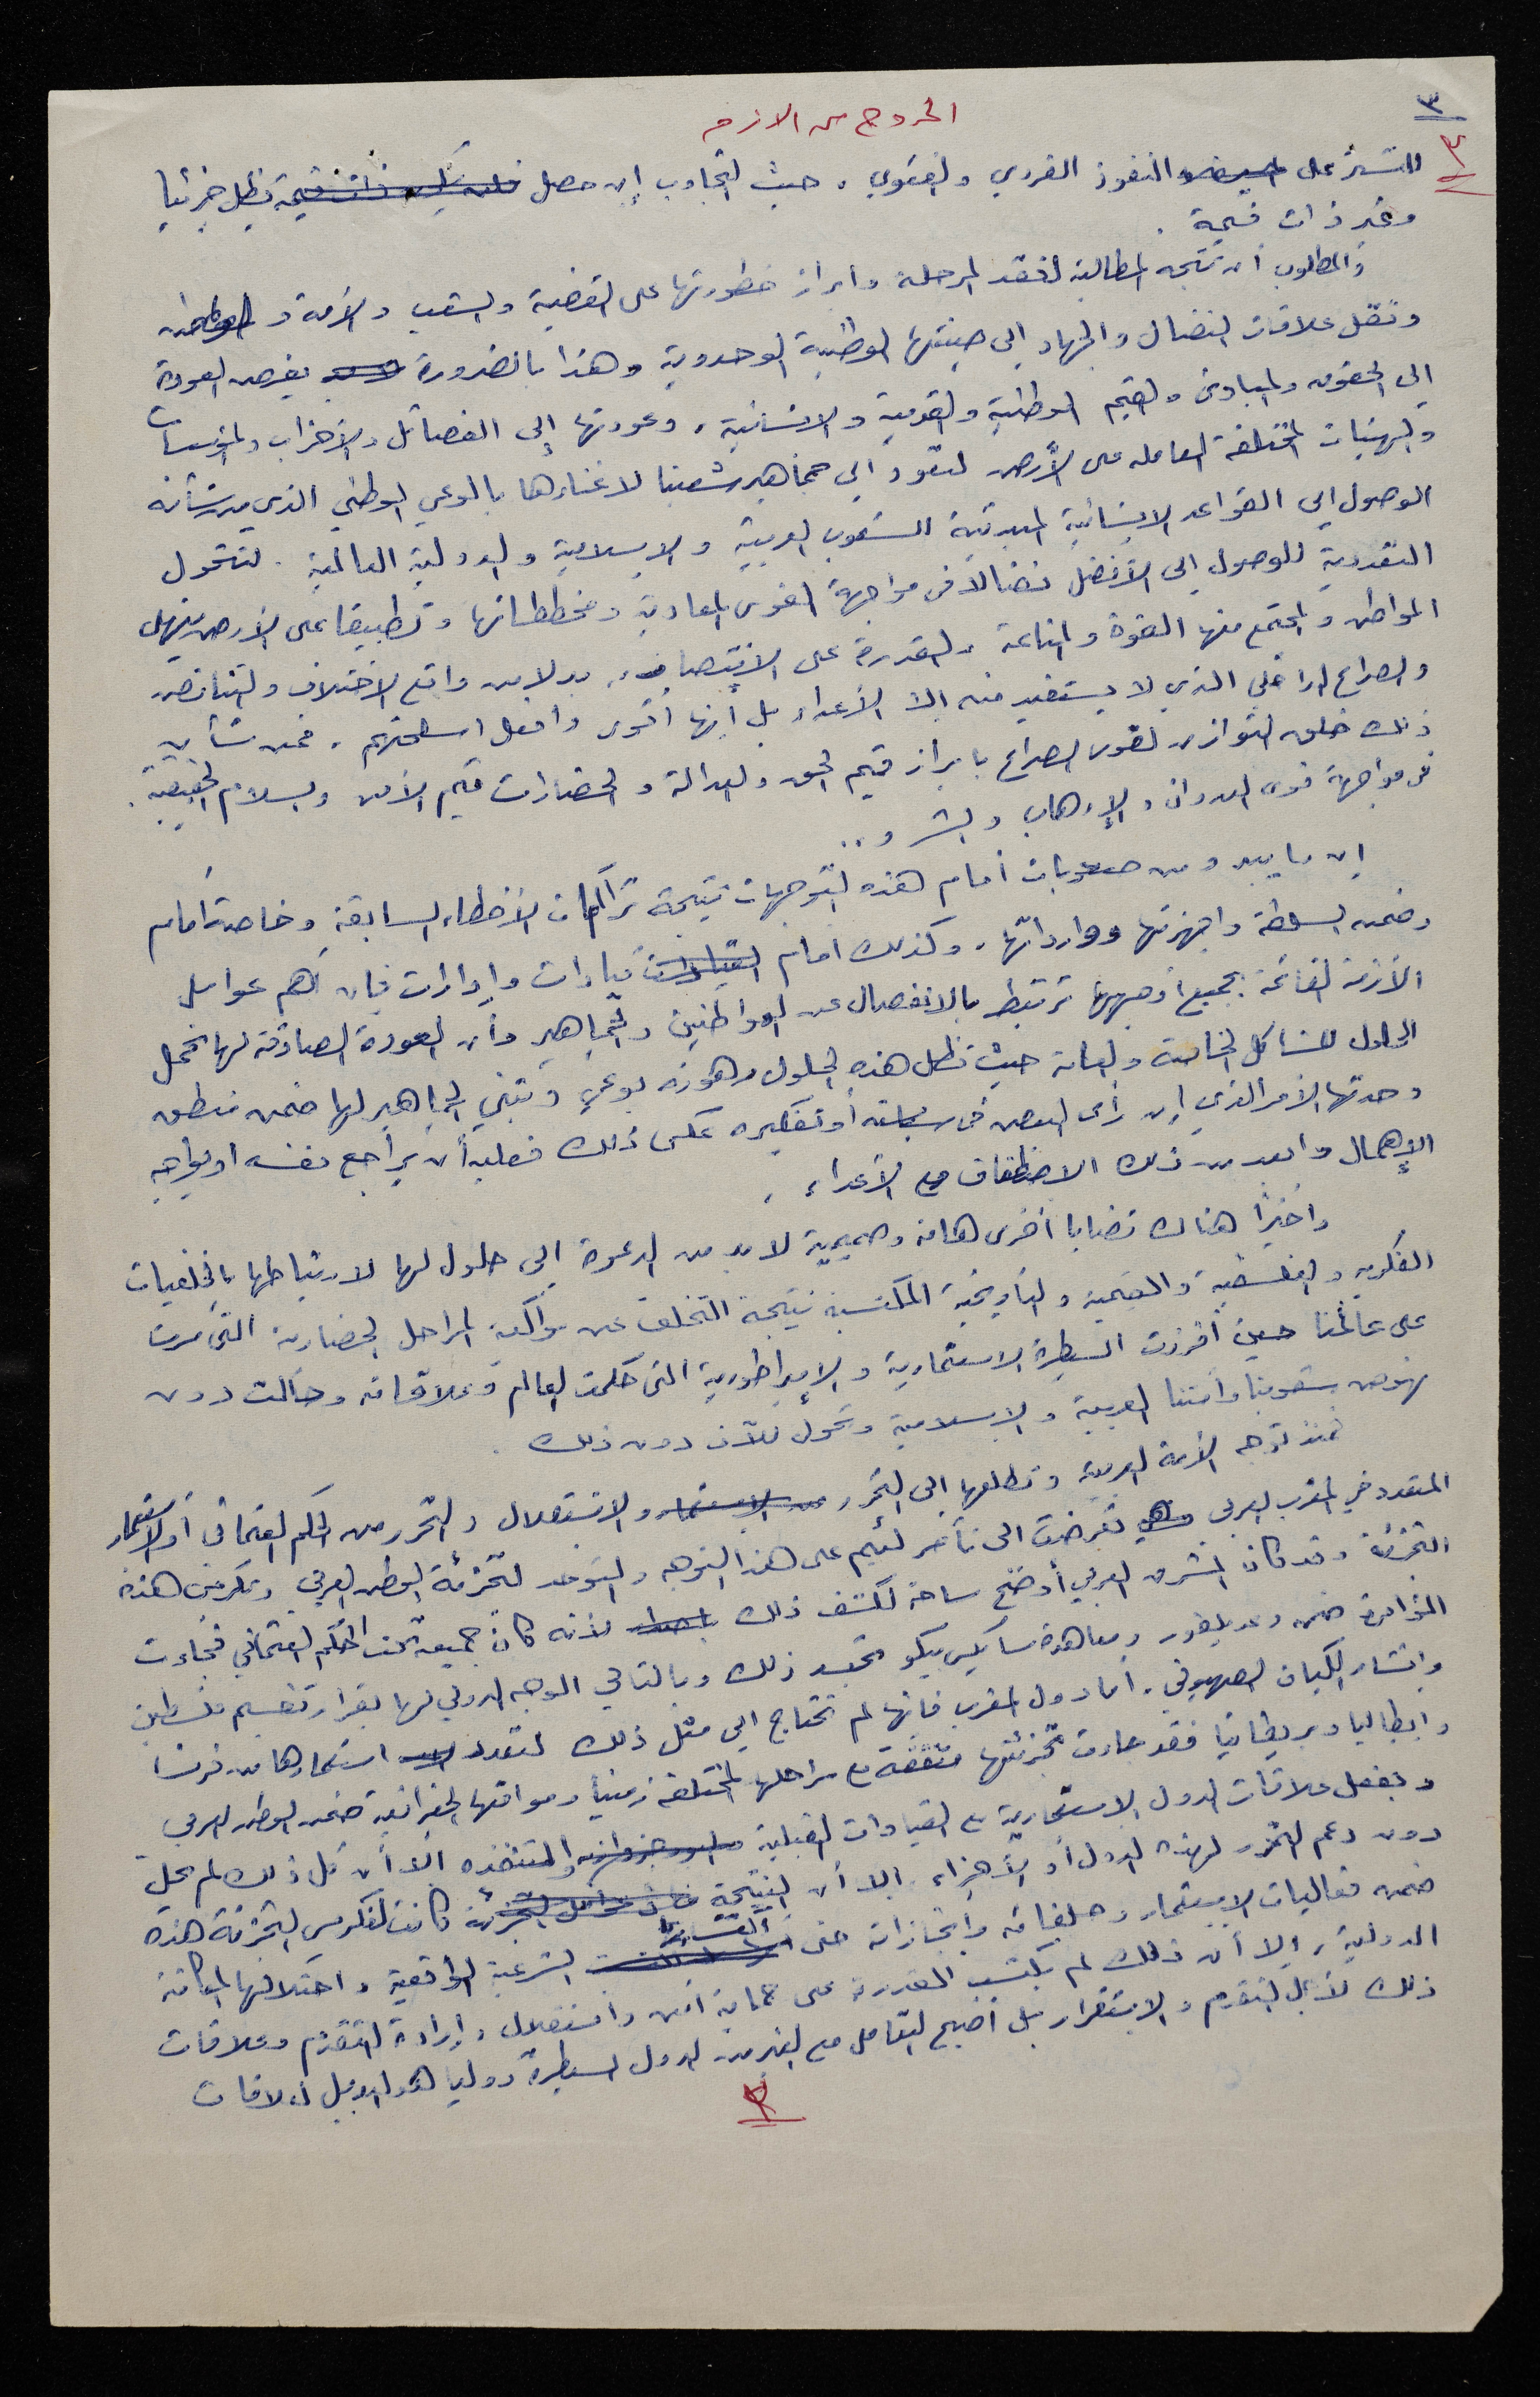 ٣
الخروج من الازمه
٣
للتستر على النفوذ الفردي والفئوي، حيث التجاوب إن حصل فيظل جزئيا
وغير ذات قيمة.
والمطلوب أن تتجه المطالبة لنقد المرحلة وابراز خطورتها على القضية والشعب والأمة والوطن
ونقل علاقات النضال والجهاد إلى صيغتها الوطنية الوحدوية وهذا بالضرورة يفرض العودة
إلى الحقوق والمبادئ والقيم الوطنية والقومية والانسانية، وعودتها إلى الفصائل والأحزاب والمؤسسات
والهيئات المختلفة العاملة على الأرض لتعود إلى جماهير شعبنا لاغنائها بالوعي الوطني الذي من شأنه
الوصول إلى القواعد الانسانية المبدئية للشعوب العربية والاسلامية والدولية العالمية. لتتحول
التعددية للوصول إلى الأفضل نضالاً في مواجهة القوى المعادية ومخططاتها وتطبيقا على الأرض ينهل
المواطن والمجتمع منها القوة والمناعة والقدرة على الانتصار، بدلا من واقع الاختلاف والتناقض
والصراع الداخلي الذي لا يستفيد منه إلا الأعداء بل أنها أقوى وافعل اسلحتهم، فمن شأن
ذلك خلق التوازن لقوى الصراع بابراز قيم الحق والعدالة والحضارات قيم الأمن والسلام الحقيقية.
في مواجهة قوى العدوان والإرهاب والشر و..
إن ما يبدو من صعوبات أمام هذه التوجهات نتيجة تراكمات الأخطاء السابقة وخاصة أمام
وضمن السلطة واجهزتها ووارداتها، وكذلك أمام قيادات وإدارات فإن أهم عوامل
الأزمة القائمة بجميع أوجهها ترتبط بالانفصال عن المواطنين والجماهير وأن العودة الصادقة لها تحمل
الحلول للمشاكل الخاصة والعامة حيث تظل هذه الحلول مرهونة بوعي وتبني الجماهير لها ضمن منطق
وحدتها الأمر الذي إن رأى البعض في سياسته أو تفكيره عكس ذلك فعليه أن يراجع نفسه او يواجه
الإهمال وابعد من ذلك الاصطفاف مع الأعداء.
وأخيراً هناك قضايا أخرى هامة وصميمية لا بد من الدعوة إلى حلول لها لارتباطها بالخلفيات
الفكرية والفلسفية والقيمية والتاريخية المكتسبة نتيجة التخلف عن مواكبة المراحل الحضارية التي مرت
على عالمنا حين أفرزت السيطرة الاستعمارية والإمبراطورية التي حكمت العالم وعلاقاته وحالت دون
نهوض شعوبنا وأمتنا العربية والاسلامية وتحول للآن دون ذلك.
فمنذ توجه الأمة العربية وتطلعها إلى التحرر والاستقلال والتحرر من الحكم العثماني أو الاستعمار
المتعدد في المغرب العربي تعرضت الى تآمر لئيم على هذا التوجه والتوحد لتجزئة الوطن العربي وتكريس هذه
التجزئة وقد كان المشرق العربي أوضح ساحة لكشف ذلك لأنه كان جميعه تحت الحكم العثماني فجاءت
المؤامرة ضمن وعد بلفور ومعاهدة سايكس بيكو تجسد ذلك وبالتالي الوجه الدولي لها بقرار تقسيم فلسطين
وانشاء الكيان الصهيوني، أما دول المغرب فإنها لم تحتاج إلى مثل ذلك لتعدد استعمارها من فرنسا
وايطاليا وبريطانيا فقد جاءت تجزئتها متفقة مع مراحلها المختلفة زمنياً ومواقعها الجغرافية ضمن الوطن العربي
وبفعل علاقات الدول الاستعمارية مع القيادات القبلية والمتنفذه إلا أن كل ذلك لم يحل
دون دعم التحرر لهذه الدول أو الأجزاء. إلا أن النتيجة كانت لتكريس التجزئة هذه
ضمن فعاليات الاستعمار وحلفائه وانجازاته حتى اكتسابها الشرعية الواقعية واحتلالها المكانة
الدولية، إلا أن ذلك لم يكسب المقدرة على حماية أمن واستقلال وإرادة التقدم وعلاقات
ذلك لأجل التقدم والاستقرار بل أصبح التعامل مع الغير من الدول المسيطرة دوليا هو البديل لعلاقات
٣